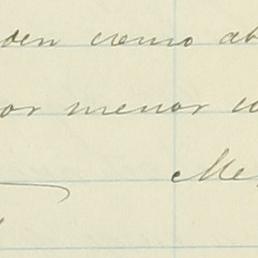 den como ab
or menor co
Me